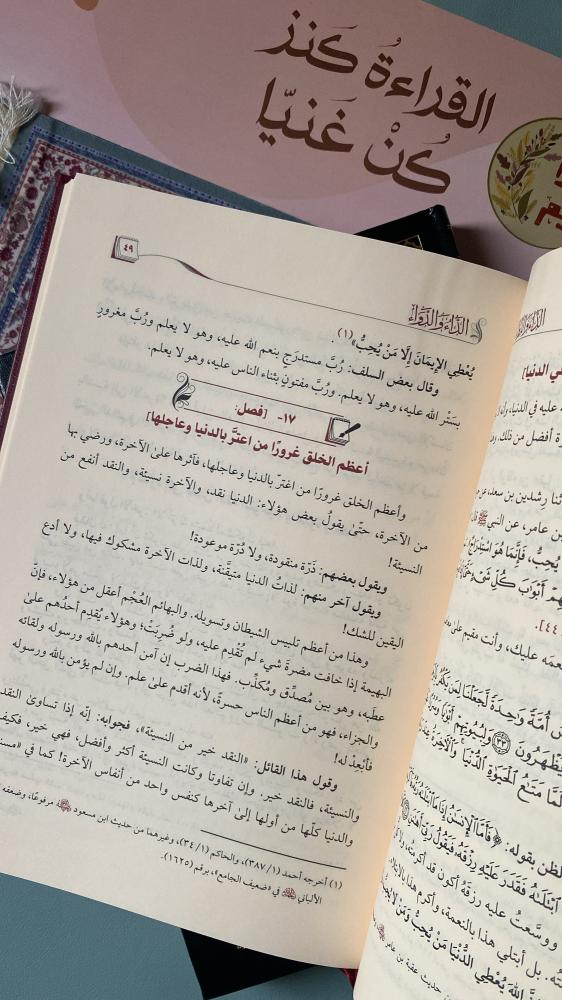 القراءةُ كَنز
كُنْ غَنيًّا
٤٩
الدَّاءُ وَالدَّوَاءُ
يُعْطِي الإِيمَانَ إِلَّا مَنْ يُحِبُّ»(١).
وقال بعض السلف: رُبَّ مستدرَجٍ بنعم الله عليه، وهو لا يعلم ورُبَّ مغرورٍ
بسَتْر الله عليه، وهو لا يعلم. ورُبَّ مفتونٍ بثناء الناس عليه، وهو لا يعلم.
١٧- [فصل:
أعظم الخلق غرورًا من اغترَّ بالدنيا وعاجلها]
وأعظم الخلق غرورًا من اغترّ بالدنيا وعاجلها، فآثرها على الآخرة، ورضي بها
من الآخرة، حتّىٰ يقولُ بعض هؤلاء: الدنيا نقد، والآخرة نسيئة، والنقد أنفع من
النسيئة!
ويقول بعضهم: ذَرّة منقودة، ولا دُرّة موعودة!
ويقول آخر منهم: لذاتُ الدنيا متيقَّنة، ولذات الآخرة مشكوك فيها، ولا أدع
اليقين للشك!
وهذا من أعظم تلبيس الشيطان وتسويله. والبهائم العُجْم أعقل من هؤلاء، فإنّ
البهيمة إذا خافت مضرةَ شيءٍ لم تُقْدِم عليه، ولو ضُرِبَتْ؛ وهؤلاء يُقدِم أحدُهم علىٰ
عطَبِه، وهو بين مُصدِّق ومُكذِّب. فهذا الضرب إن آمن أحدهم بالله ورسوله ولقائه
والجزاء، فهو من أعظم الناس حسرةً، لأنه أقدم علىٰ علم. وإن لم يؤمن بالله ورسوله
فأَبْعِدْ له!
وقول هذا القائل: «النقد خير من النسيئة»، فجوابه: إنّه إذا تساوىٰ النقد
والنسيئة، فالنقد خير. وإن تفاوتا وكانت النسيئة أكثر وأفضل، فهي خير، فكيف
والدنيا كلّها من أولها إلى آخرها كنفس واحد من أنفاس الآخرة! كما في «مسند
(١) أخرجه أحمد (٣٨٧/١)، والحاكم (٣٤/١)، وغيرهما من حديث ابن مسعود ﷺ مرفوعًا، وضعفه
الألباني ﷺ في «ضعيف الجامع»، برقم (١٦٢٥).
ي الدنيا]
عليه في الدنيا، وأنه
رة أفضل من ذلك
ثنا رِشدين بن سعد، عن
بن عامر، عن النبي ﷺ قال
يُحِبُّ، فَإِنَّمَا هُوَ اسْتِدْرَاجٌ
أَبْوَابَ كُلِّ شَيْءٍ حَتَّىٰ
٤٤].
نعمَه عليك، وأنت مقيم علىٰ
أُمَّةً وَٰحِدَةً لَّجَعَلْنَا لِمَن يَكْفُرُ
يَظْهَرُونَ ٣٣ وَلِبُيُوتِهِمْ أَبْوَٰبًا
لَمَّا مَتَٰعُ ٱلْحَيَوٰةِ ٱلدُّنْيَا وَٱلْءَاخِرَةُ عِندَ
الظن بقوله: ﴿فَأَمَّا ٱلْإِنسَٰنُ إِذَا مَا ٱبْتَلَىٰهُ رَبُّهُۥ
ٱبْتَلَىٰهُ فَقَدَرَ عَلَيْهِ رِزْقَهُۥ فَيَقُولُ رَبِّيٓ أَهَٰنَنِ
ووسَّعتُ عليه رزقَهُ أكون قد أكرمتُه، ولا
بل أبتلي هذا بالنعمة، وأكرم هذا بالابتلاء
اللهَ يُعْطِي الدُّنْيَا مَنْ يُحِبُّ وَمَنْ لَا يُحِبُّ
حديث عقبة بن عامر